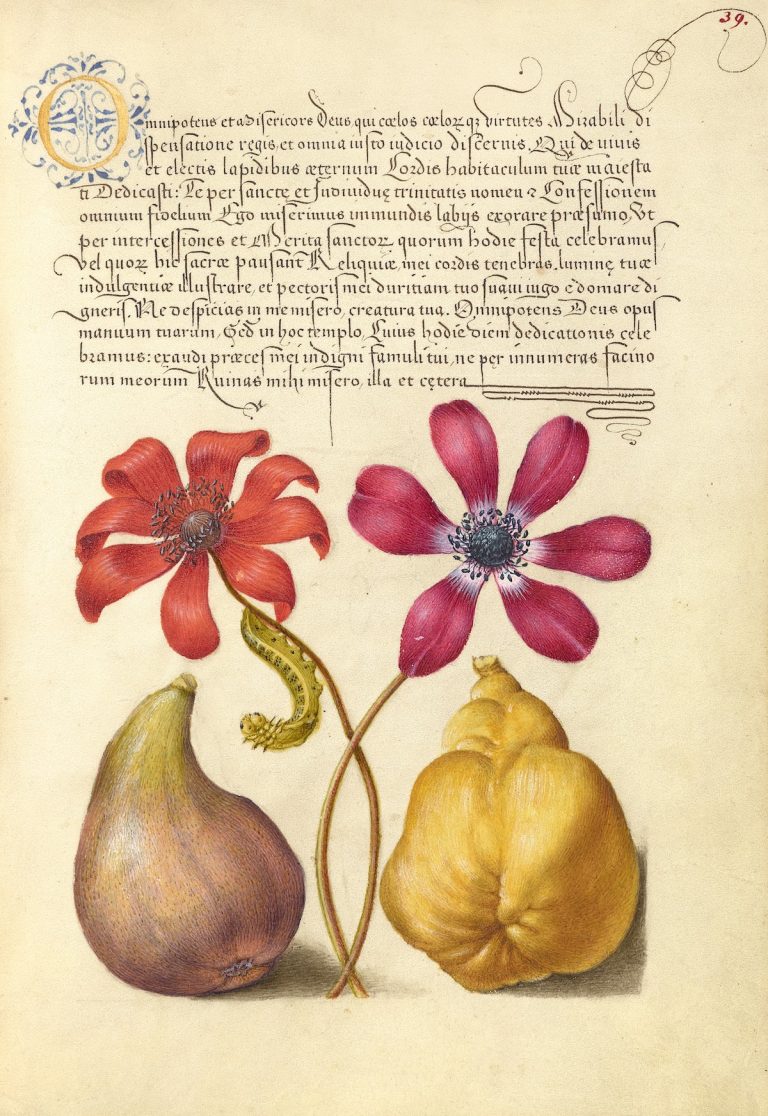 39.
Omnipotens et Misericors Deus, qui cœlos cœlorq; virtutes Mirabili di
spensatione regis, et omnia iusto iudicio discernis. Qui de vivis
et electis lapidibus æternum Cordis habitaculum tuæ maiesta
ti Dedicasti: Te per sanctę et Individuę trinitatis nomen & Confessionem
omnium fidelium Ego miserimus immundis labijs exorare præsumo, Vt
per intercessiones et Merita sanctor quorum hodie festa celebramus
vel quor hic sacræ pausant Reliquiæ, mei cordis tenebras, luminę tuæ
indulgentiæ illustrare, et pectoris mei duritiam tuo suavi iugo edomare di
gneris. Ne despicias in me misero, creatura tua. Omnipotens Deus opus
manuum tuarum, Sed in hoc templo, Cuius hodie diem dedicationis cele
bramus: exaudi præces mei indigni famuli tui, ne per innumeras facino
rum meorum Ruinas mihi misero, illa et cętera